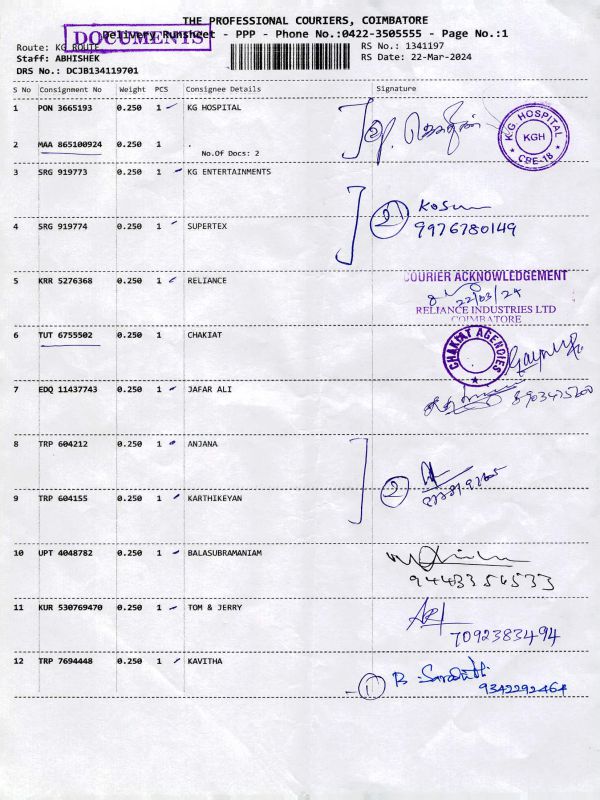 THE PROFESSIONAL COURIERS, COIMBATORE
DOCUMENTS
Delivery Runsheet - PPP - Phone No.:0422-3505555 - Page No.:1
Route: KG ROUTE
RS No.: 1341197
Staff: ABHISHEK
RS Date: 22-Mar-2024
DRS No.: DCJB134119701
S No Consignment No Weight PCS Consignee Details Signature
1 PON 3665193 0.250 1 KG HOSPITAL
K.G HOSPITAL
KGH
CBE-18
2 MAA 865100924 0.250 1 .
No.Of Docs: 2
3 SRG 919773 0.250 1 KG ENTERTAINMENTS
2
9976780149
4 SRG 919774 0.250 1 SUPERTEX
5 KRR 5276368 0.250 1 RELIANCE
COURIER ACKNOWLEDGEMENT
22/03/24
RELIANCE INDUSTRIES LTD
COIMBATORE
6 TUT 6755502 0.250 1 CHAKIAT
CHAKIAT AGENCIES
7 EDQ 11437743 0.250 1 JAFAR ALI
8 TRP 604212 0.250 1 ANJANA
2
9 TRP 604155 0.250 1 KARTHIKEYAN
10 UPT 4048782 0.250 1 BALASUBRAMANIAM
9443356533
11 KUR 530769470 0.250 1 TOM & JERRY
7092383494
12 TRP 7694448 0.250 1 KAVITHA
1
9342292464